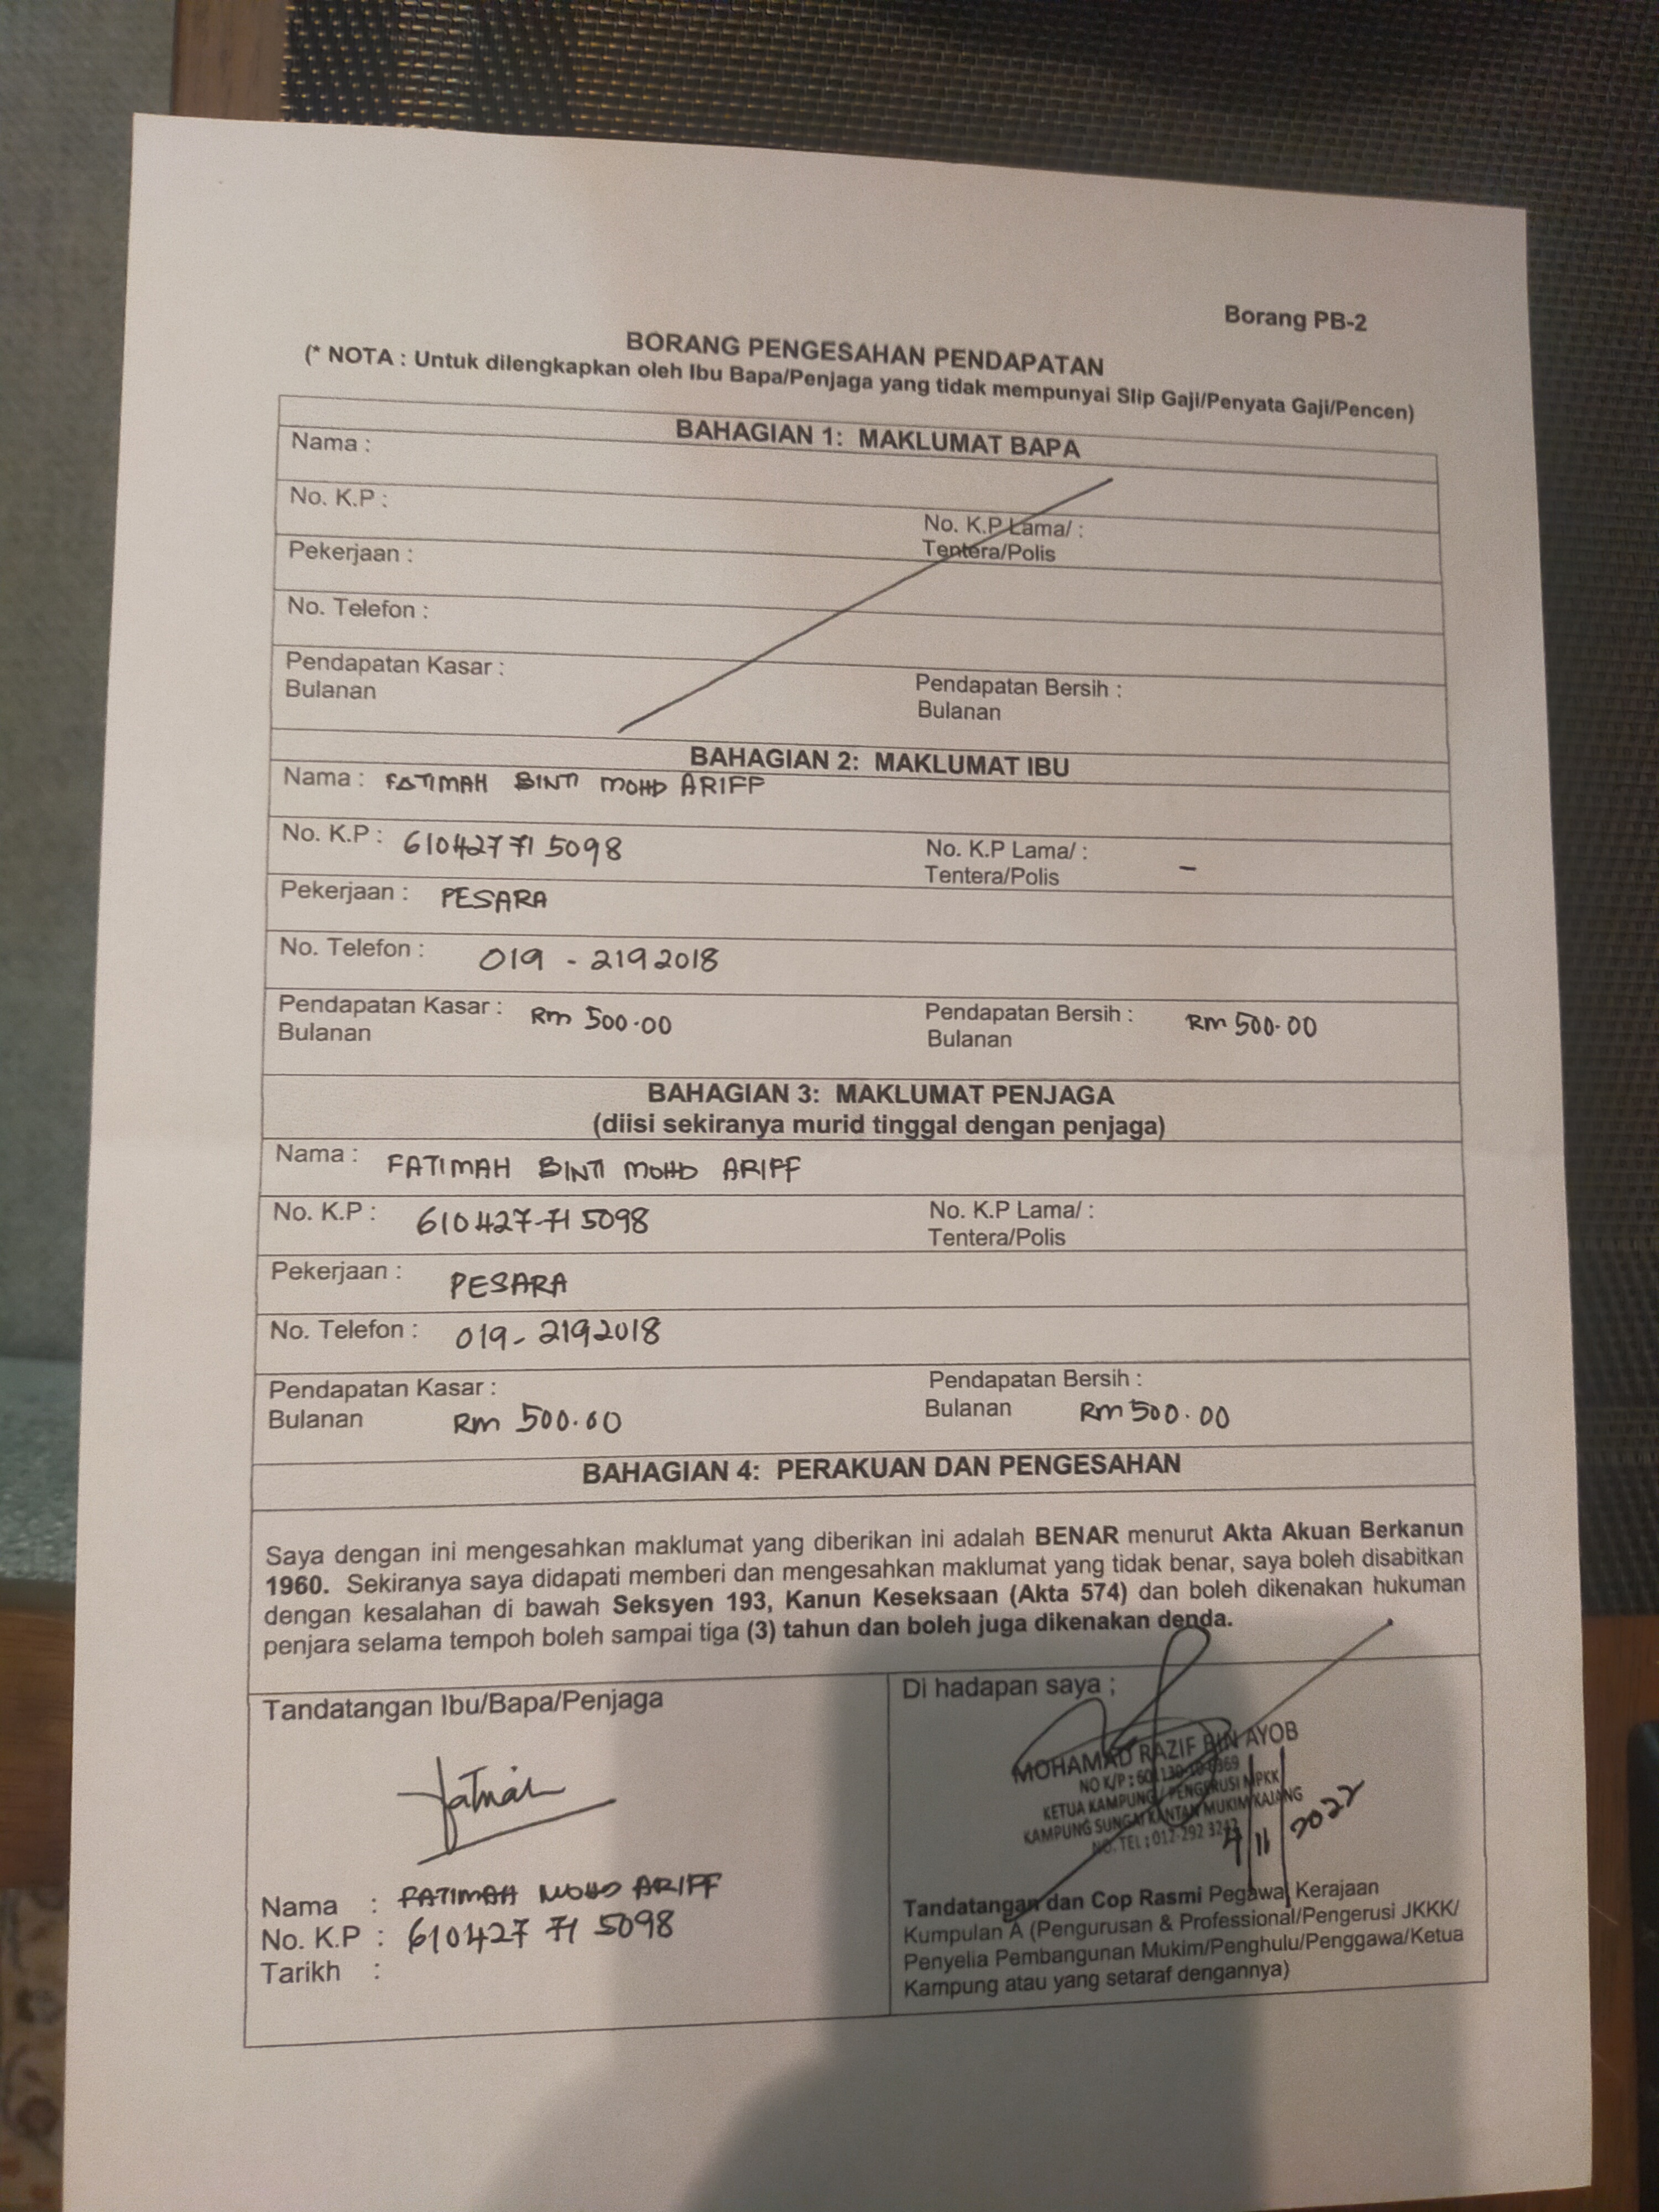 Borang PB-2
BORANG PENGESAHAN PENDAPATAN
(* NOTA : Untuk dilengkapkan oleh Ibu Bapa/Penjaga yang tidak mempunyai Slip Gaji/Penyata Gaji/Pencen)
BAHAGIAN 1: MAKLUMAT BAPA
Nama :
No. K.P :
No. K.P Lama/ :
Tentera/Polis
Pekerjaan :
No. Telefon :
Pendapatan Kasar :
Bulanan
Pendapatan Bersih :
Bulanan
BAHAGIAN 2: MAKLUMAT IBU
Nama : FATIMAH BINTI MOHD ARIFF
No. K.P : 610427 71 5098
No. K.P Lama/ : -
Tentera/Polis
Pekerjaan : PESARA
No. Telefon : 019 - 2192018
Pendapatan Kasar : RM 500.00
Bulanan
Pendapatan Bersih : RM 500.00
Bulanan
BAHAGIAN 3: MAKLUMAT PENJAGA
(diisi sekiranya murid tinggal dengan penjaga)
Nama : FATIMAH BINTI MOHD ARIFF
No. K.P : 610427-71 5098
No. K.P Lama/ :
Tentera/Polis
Pekerjaan : PESARA
No. Telefon : 019 - 2192018
Pendapatan Kasar :
Bulanan RM 500.00
Pendapatan Bersih :
Bulanan RM 500.00
BAHAGIAN 4: PERAKUAN DAN PENGESAHAN
Saya dengan ini mengesahkan maklumat yang diberikan ini adalah BENAR menurut Akta Akuan Berkanun
1960. Sekiranya saya didapati memberi dan mengesahkan maklumat yang tidak benar, saya boleh disabitkan
dengan kesalahan di bawah Seksyen 193, Kanun Keseksaan (Akta 574) dan boleh dikenakan hukuman
penjara selama tempoh boleh sampai tiga (3) tahun dan boleh juga dikenakan denda.
Tandatangan Ibu/Bapa/Penjaga
Nama : FATIMAH MOHD ARIFF
No. K.P : 610427 71 5098
Tarikh :
Di hadapan saya ;
MOHAMAD RAZIF BIN AYOB
NO K/P :
KETUA KAMPUNG / PENGERUSI MPKK
KAMPUNG SUNGAI KANTAN MUKIM KAJANG
NO. TEL : 012-292
4/11/2022
Tandatangan dan Cop Rasmi Pegawai Kerajaan
Kumpulan A (Pengurusan & Professional/Pengerusi JKKK/
Penyelia Pembangunan Mukim/Penghulu/Penggawa/Ketua
Kampung atau yang setaraf dengannya)